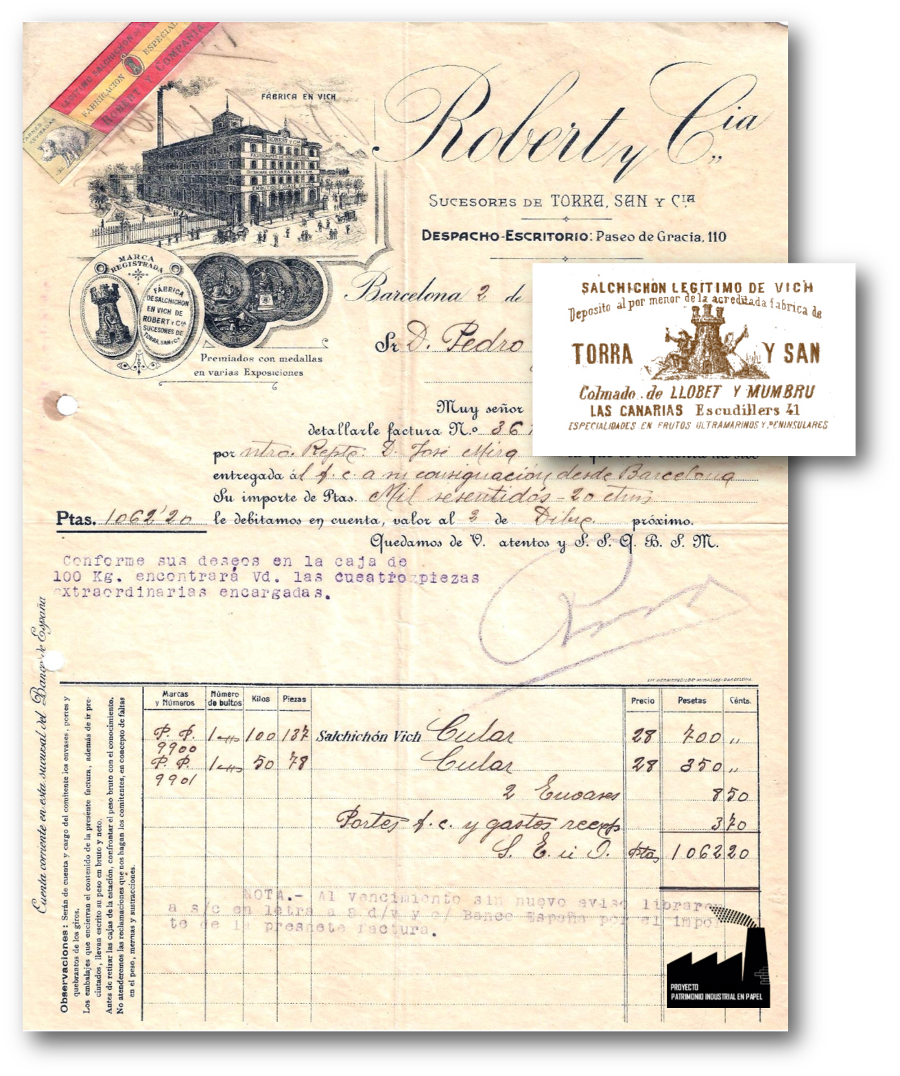 FABRICACION ESPECIAL
ROBERT Y COMPAÑIA
FÁBRICA EN VICH
Robert y Cia
SUCESORES DE TORRA, SAN Y CIA
DESPACHO-ESCRITORIO: Paseo de Gracia, 110
MARCA
REGISTRADA
FÁBRICA
DE SALCHICHON
EN VICH DE
ROBERT Y Cia
SUCESORES DE
TORRA, SAN Y Cia
Premiados con medallas
en varias Exposiciones
Barcelona 2 de
Sr. D. Pedro
SALCHICHÓN LEGÍTIMO DE VICH
Deposito al por menor de la acreditada fabrica de
TORRA Y SAN
Colmado de LLOBET Y MUMBRU
LAS CANARIAS Escudillers 41
ESPECIALIDADES EN FRUTOS ULTRAMARINOS Y PENINSULARES
Muy señor
detallarle factura N.º 361
por ntro. Repte: D. José Mira
entregada á l f. c. a mi consignación desde Barcelona
Su importe de Ptas. Mil sesentidós - 20 ctms
Ptas. 1062'20 le debitamos en cuenta, valor al 3 de Dibre. próximo.
Quedamos de V. atentos y S. S. Q. B. S. M.
Conforme sus deseos en la caja de
100 Kg. encontrará Vd. las cueatro piezas
extraordinarias encargadas.
Cuenta corriente en esta sucursal del Banco de España
Observaciones: Serán de cuenta y cargo del comitente los envases, portes y
quebrantos de los giros.
Los embalajes que encierran el contenido de la presente factura, además de ir pre-
cintados, llevan escrito su peso en bruto y neto.
Antes de retirar las cajas de la estación, confrontar el peso bruto con el conocimiento.
No atenderemos las reclamaciones que nos hagan los comitentes, en concepto de faltas
en el peso, mermas y sustracciones.
Marcas y Números Número de bultos Kilos Piezas Precio Pesetas Cénts.
P. P. 9900 1 100 137 Salchichón Vich Cular 28 700 „
P. P. 9901 1 50 78 Cular 28 350 „
2 Envases 8 50
Portes f. c. y gastos recep. 3 70
S. E. u O. Ptas 1062 20
NOTA.- Al vencimiento sin nuevo aviso libraremos
a s/c en letra a 8 d/v y c/ Banco España por el impo
te de la presnete factura.
PROYECTO
PATRIMONIO INDUSTRIAL EN PAPEL